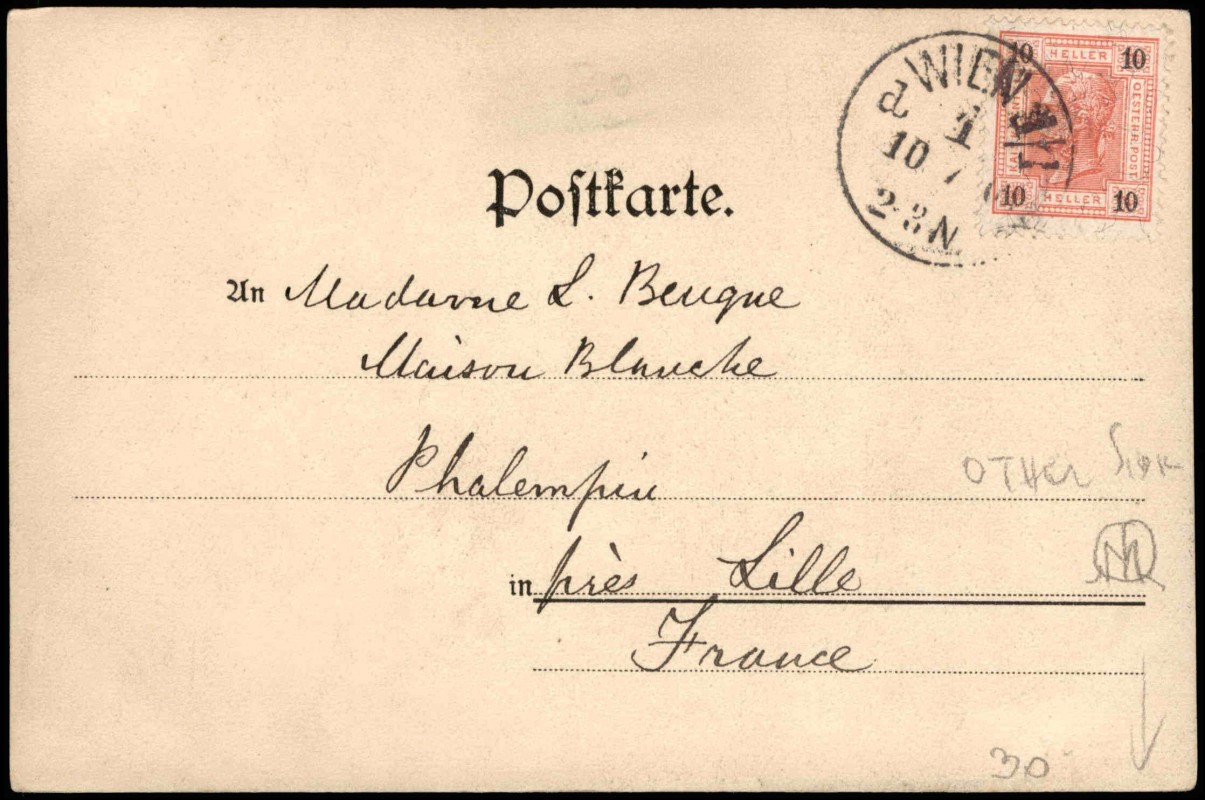 WIEN 1
1
10 7
2-3N
10 HELLER 10
OESTERR. POST
10 HELLER 10
Postkarte.
An Madame L. Beugne
Maison Blanche
Phalempin
OTHER SIDE
in près Lille
France
30